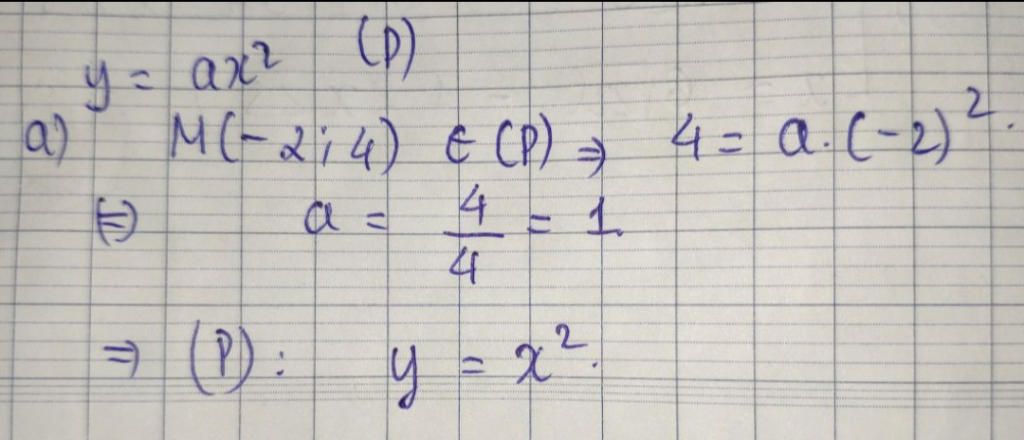 y = ax² (P)
a) M(-2; 4) ∈ (P) ⇒ 4 = a.(-2)².
⇔ a = 4/4 = 1
⇒ (P): y = x².